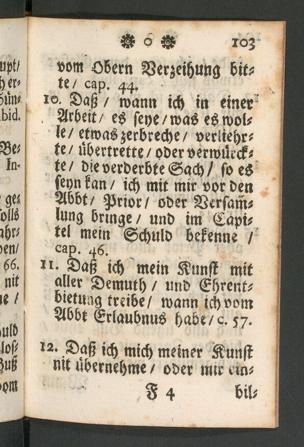 ❋ o ❋ 103
vom Obern Verzeihung bit-
te / cap. 44.
10. Daß / wann ich in einer
Arbeit / es seye / was es wol-
le / etwas zerbreche / verliehr-
te / übertrette / oder verwürck-
te / die verderbte Sach / so es
seyn kan / ich mit mir vor den
Abbt / Prior / oder Versam-
lung bringe / und im Capi-
tel mein Schuld bekenne /
cap. 46.
11. Daß ich mein Kunst mit
aller Demuth / und Ehrent-
bietung treibe / wann ich vom
Abbt Erlaubnus habe / c. 57.
12. Daß ich mich meiner Kunst
nit übernehme / oder mir ein-
F 4 bil-